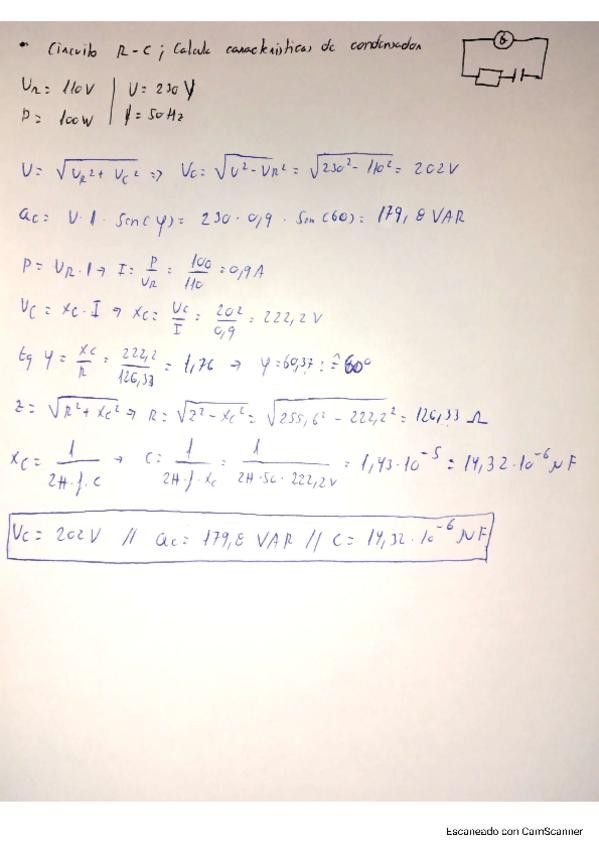 • Circuito R-C ; Calcule características de condensador
G
UR = 110V | U = 230 V
P = 100W | f = 50Hz
U = √UR² + UC² => UC = √U² - UR² = √230² - 110² = 202 V
QC = U · I · Sen(φ) = 230 · 0,9 · Sen(60) = 179,8 VAR
P = UR · I → I = P/UR = 100/110 = 0,9 A
UC = XC · I → XC = UC/I = 202/0,9 = 222,2 V
tg φ = XC/R = 222,2/126,33 = 1,76 → φ = 60,37 := 60º
Z = √R² + XC² → R = √Z² - XC² = √255,6² - 222,2² = 126,33 Ω
XC = 1/2π·f·C → C = 1/2π·f·XC = 1/2π·50·222,2V = 1,43·10⁻⁵ = 14,32·10⁻⁶ μF
UC = 202V // QC = 179,8 VAR // C = 14,32·10⁻⁶ μF
Escaneado con CamScanner